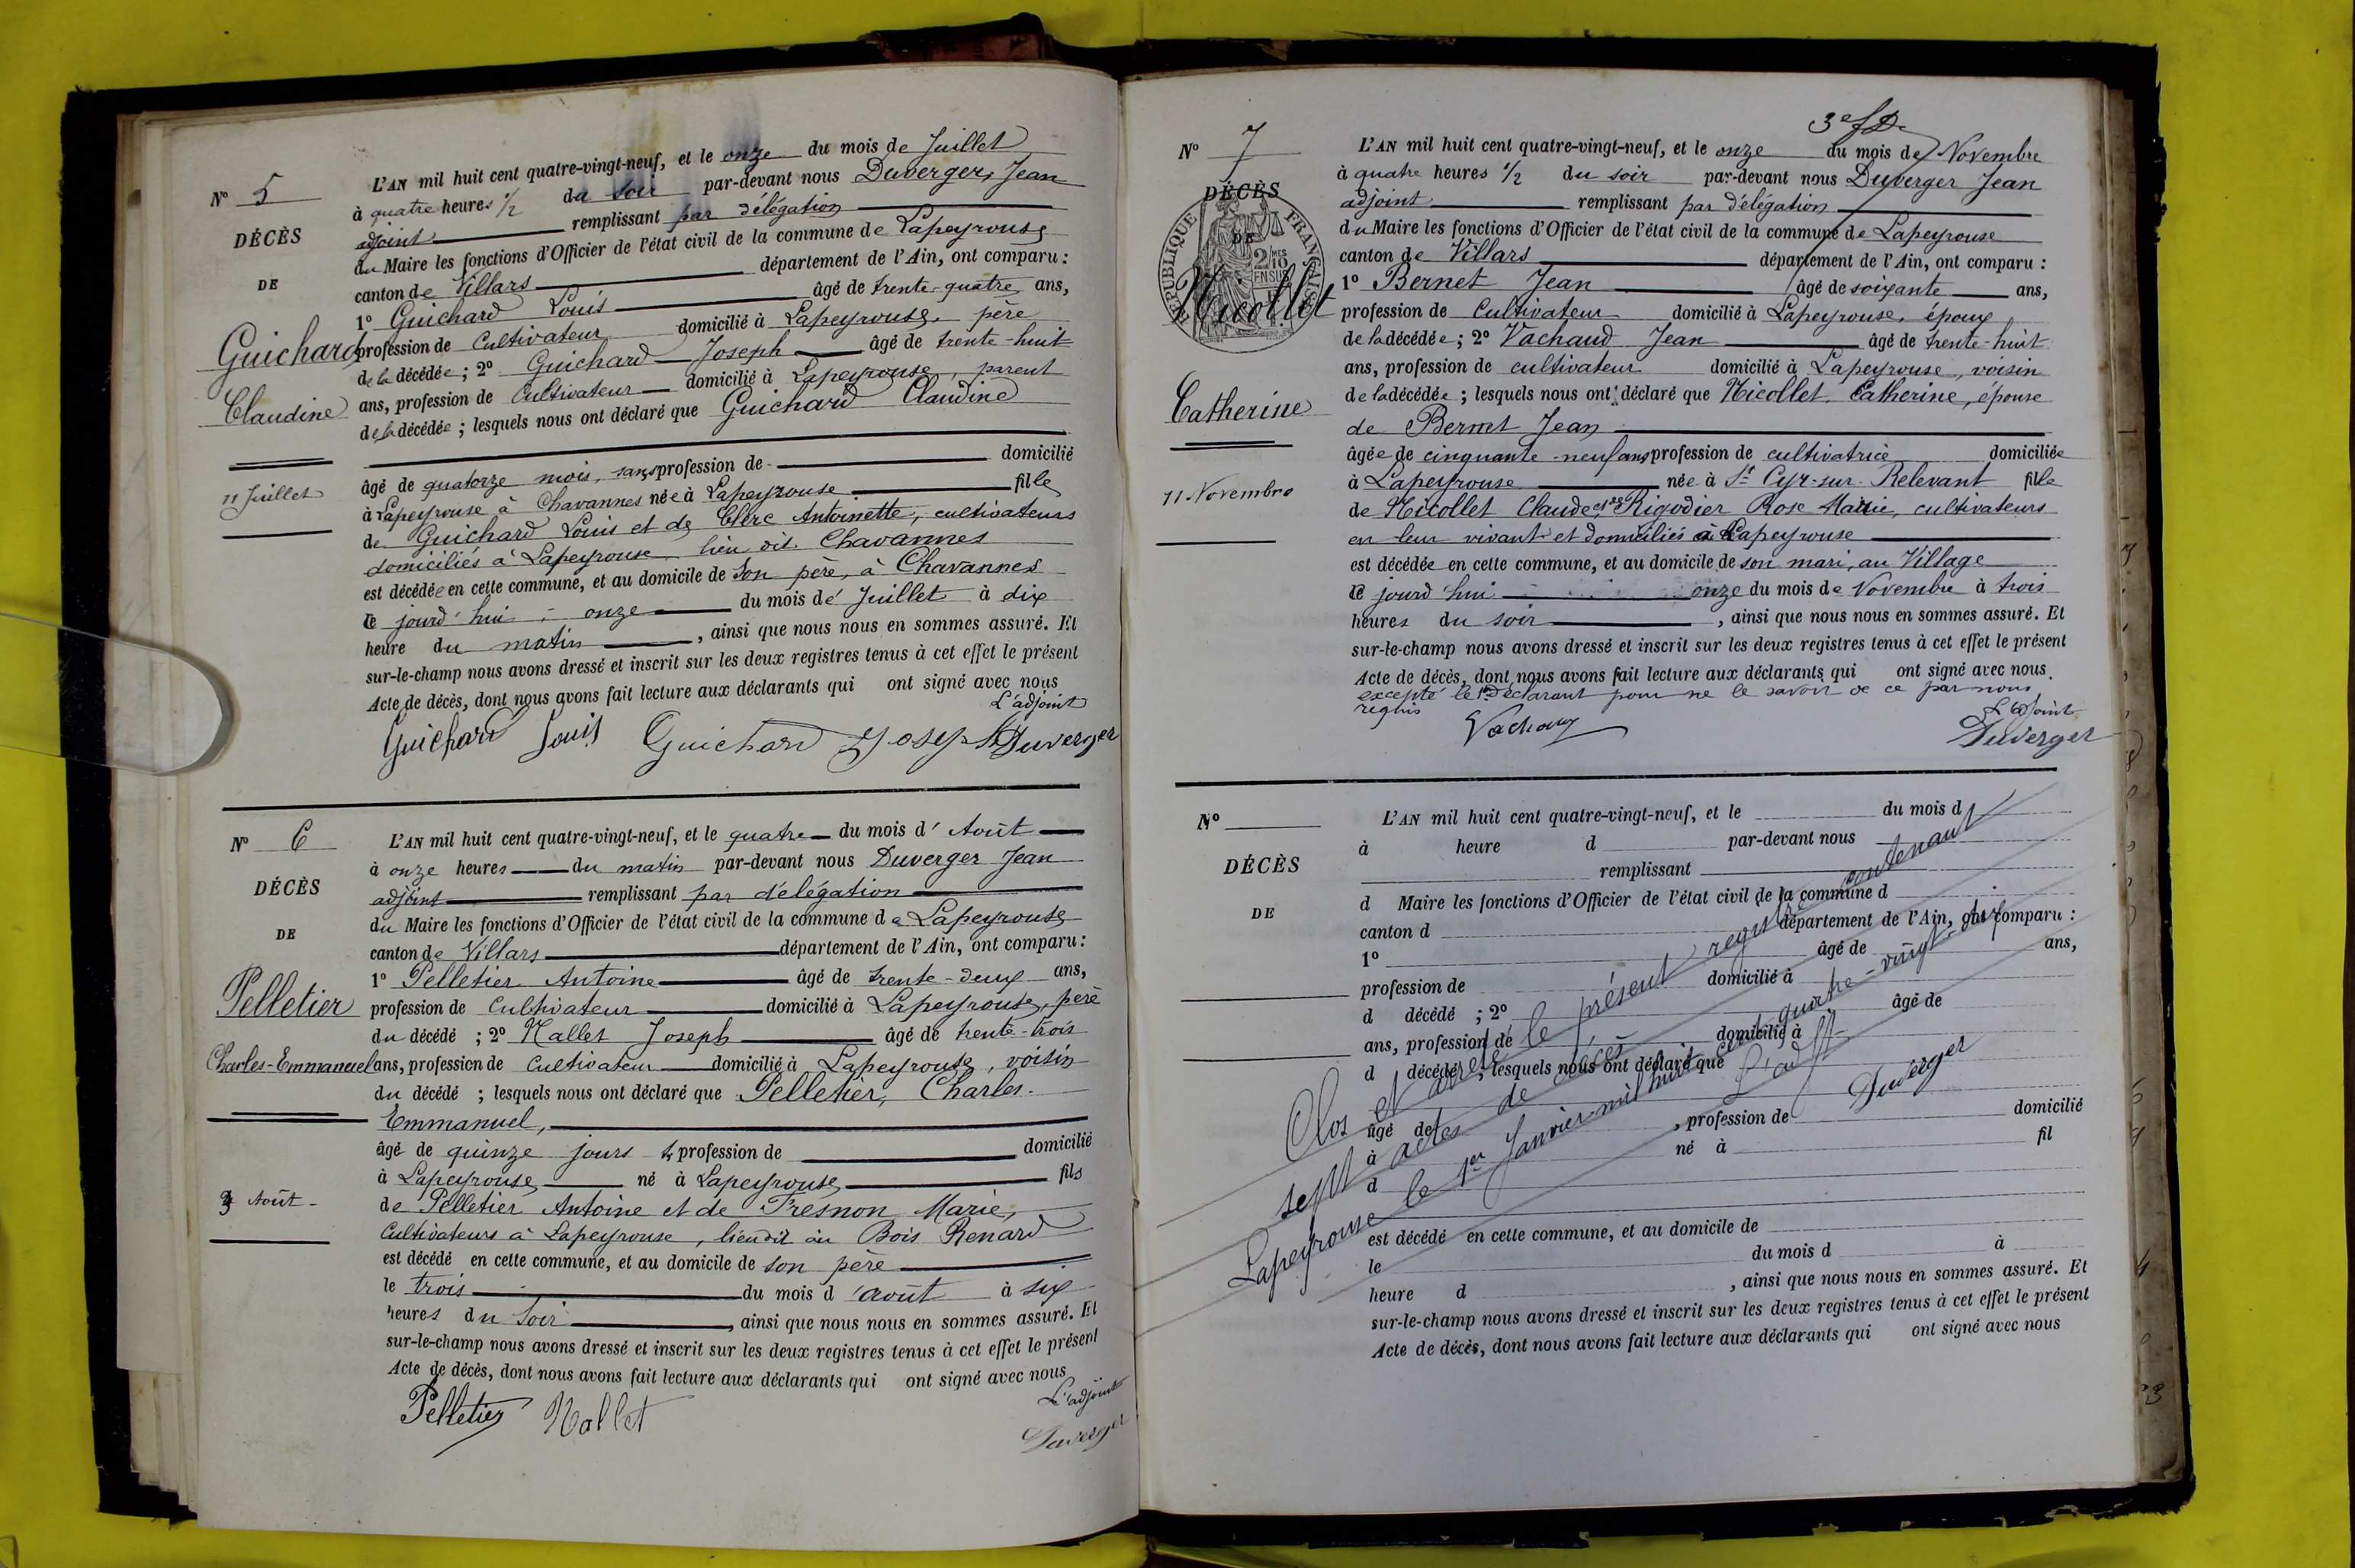 N° 5
DÉCÈS
DE
Guichard
Claudine
11 Juillet
L'AN mil huit cent quatre-vingt-neuf, et le onze du mois de Juillet
à quatre heures 1/2 du soir par-devant nous Duverger, Jean
adjoint remplissant par délégation
du Maire les fonctions d'Officier de l'état civil de la commune de Lapeyrouse
canton de Villars département de l'Ain, ont comparu :
1° Guichard Louis âgé de trente-quatre ans,
profession de Cultivateur domicilié à Lapeyrouse, père
de la décédée ; 2° Guichard Joseph âgé de trente-huit
ans, profession de Cultivateur domicilié à Lapeyrouse, parent
de la décédée ; lesquels nous ont déclaré que Guichard Claudine
âgé de quatorze mois, sans profession de domicilié
à Lapeyrouse à Chavannes née à Lapeyrouse fille
de Guichard Louis et de Clerc Antoinette, cultivateurs
domiciliés à Lapeyrouse lieu dit Chavannes
est décédée en cette commune, et au domicile de son père, à Chavannes
ce jourd'hui onze du mois de Juillet à dix
heure du matin, ainsi que nous nous en sommes assuré. Et
sur-le-champ nous avons dressé et inscrit sur les deux registres tenus à cet effet le présent
Acte de décès, dont nous avons fait lecture aux déclarants qui ont signé avec nous
L'adjoint
Guichard Louis Guichard Joseph Duverger
N° 6
DÉCÈS
DE
Pelletier
Charles-Emmanuel
3 Août
L'AN mil huit cent quatre-vingt-neuf, et le quatre du mois d'Août
à onze heures du matin par-devant nous Duverger Jean
adjoint remplissant par délégation
du Maire les fonctions d'Officier de l'état civil de la commune de Lapeyrouse
canton de Villars département de l'Ain, ont comparu :
1° Pelletier Antoine âgé de trente-deux ans,
profession de Cultivateur domicilié à Lapeyrouse, père
du décédé ; 2° Nallet Joseph âgé de trente-trois
ans, profession de Cultivateur domicilié à Lapeyrouse, voisin
du décédé ; lesquels nous ont déclaré que Pelletier, Charles-
Emmanuel,
âgé de quinze jours profession de domicilié
à Lapeyrouse né à Lapeyrouse fils
de Pelletier Antoine et de Fresnon Marie,
Cultivateurs à Lapeyrouse, lieu dit au Bois Renard
est décédé en cette commune, et au domicile de son père
le trois du mois d'août à six
heures du soir, ainsi que nous nous en sommes assuré. Et
sur-le-champ nous avons dressé et inscrit sur les deux registres tenus à cet effet le présent
Acte de décès, dont nous avons fait lecture aux déclarants qui ont signé avec nous
L'adjoint
Pelletier Nallet Duverger
N° 7
DÉCÈS
DE
RÉPUBLIQUE FRANÇAISE
2/10 EN SUS
Nicollet
Catherine
11 Novembre
L'AN mil huit cent quatre-vingt-neuf, et le onze du mois de Novembre
à quatre heures 1/2 du soir par-devant nous Duverger Jean
adjoint remplissant par délégation
du Maire les fonctions d'Officier de l'état civil de la commune de Lapeyrouse
canton de Villars département de l'Ain, ont comparu :
1° Bernet Jean âgé de soixante ans,
profession de Cultivateur domicilié à Lapeyrouse, époux
de la décédée ; 2° Vachaud Jean âgé de trente-huit
ans, profession de cultivateur domicilié à Lapeyrouse, voisin
de la décédée ; lesquels nous ont déclaré que Nicollet Catherine, épouse
de Bernet Jean
âgée de cinquante-neuf ans profession de cultivatrice domiciliée
à Lapeyrouse née à St Cyr-sur-Relevant fille
de Nicollet Claude et de Rigodier Rose Marie, cultivateurs
en leur vivant et domiciliés à Lapeyrouse
est décédée en cette commune, et au domicile de son mari, au Village
ce jourd'hui onze du mois de Novembre à trois
heures du soir, ainsi que nous nous en sommes assuré. Et
sur-le-champ nous avons dressé et inscrit sur les deux registres tenus à cet effet le présent
Acte de décès, dont nous avons fait lecture aux déclarants qui ont signé avec nous
excepté le 1er déclarant pour ne le savoir de ce par nous
requis
L'adjoint
Vachaud Duverger
N°
DÉCÈS
DE
L'AN mil huit cent quatre-vingt-neuf, et le du mois d
à heure d par-devant nous
remplissant
d Maire les fonctions d'Officier de l'état civil de la commune d
canton d département de l'Ain, ont comparu :
1° âgé de ans,
profession de domicilié à
d décédé ; 2° âgé de
ans, profession de domicilié à
d décédé ; lesquels nous ont déclaré que
âgé de , profession de domicilié
à né à fil
d
est décédé en cette commune, et au domicile de
le du mois d à
heure d , ainsi que nous nous en sommes assuré. Et
sur-le-champ nous avons dressé et inscrit sur les deux registres tenus à cet effet le présent
Acte de décès, dont nous avons fait lecture aux déclarants qui ont signé avec nous
Clos et arrêté le présent registre contenant
sept actes de décès
Lapeyrouse le 1er Janvier mil huit cent quatre-vingt-dix
L'adjt
Duverger